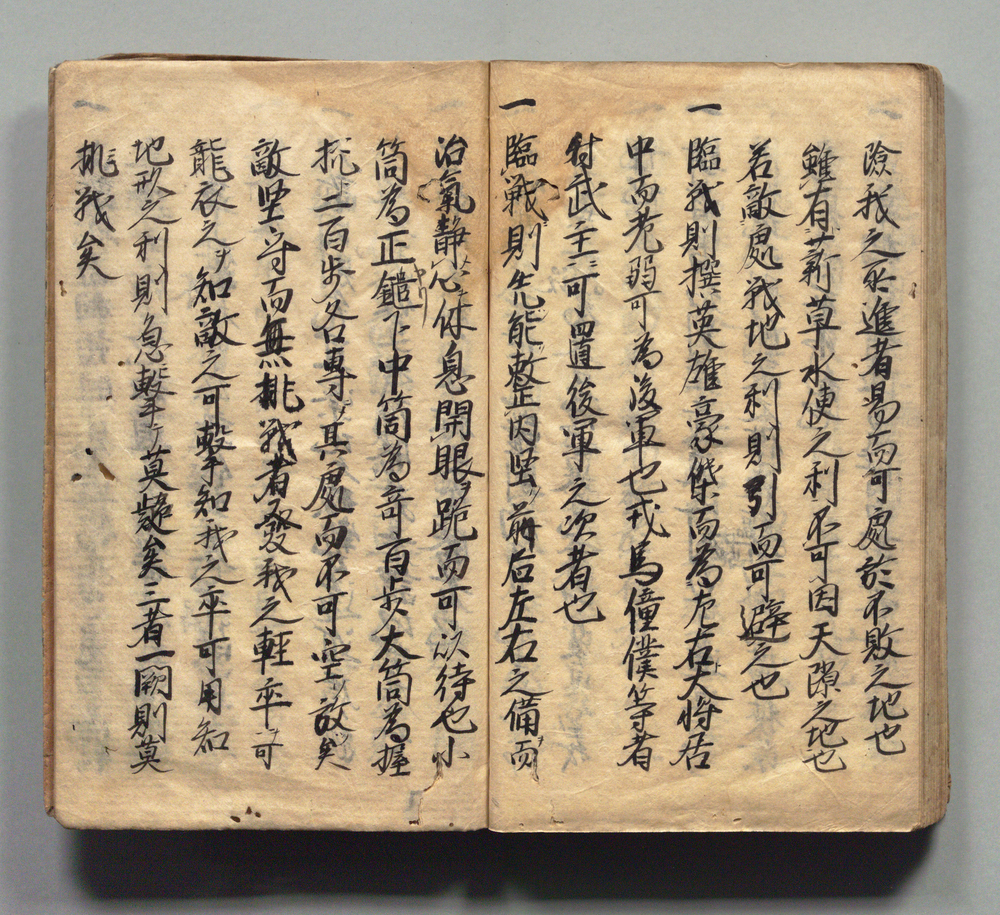 險我之所進者易而可處於不敗之地也
雖有薪草水便之利不可因天隙之地也
若敵處戰地之利則引而可避之也
一 臨戦則撰英雄豪傑而為左右大将居
中而老弱可為後軍也戎馬僮僕等者
付武主ニ可置後軍之次者也
一 臨戰則先能整正内坚前后左右之備而
治氣静心休息開眼ヲ跪而可以待也小
筒為正鑓ト中筒為奇百步大筒為握
二百步各專其處而不可空放矣
敵坚守而無挑戦者發我之軽卒可
襲之知敵之可擊知我之卒可用知
地形之利則急擊之莫疑矣三者一闕則莫
挑戦矣